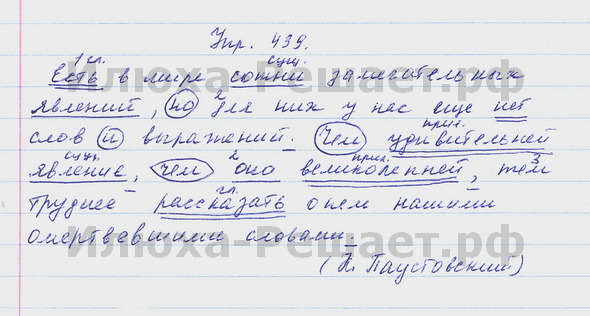 Упр. 439.
1 гл. сущ.
Есть в мире сотни замечательных
явлений, но 2 для них у нас еще нет
слов и выражений. Чем удивительней
прил.
сущ. 2 прил. 3
явление, чем оно великолепней, тем
гл.
труднее рассказать о нем нашими
омертвевшими словами.
(К. Паустовский)
Илюха-Решает.рф
Илюха-Решает.рф